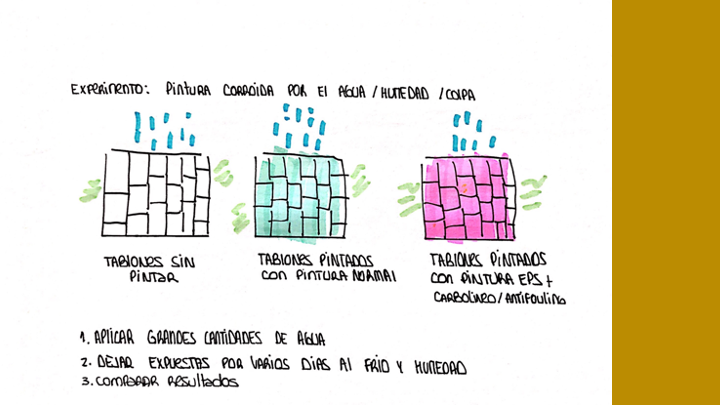 EXPERIMENTO: PINTURA CORROIDA POR El AGUA / HUMEDAD / COIPA
TABLONES SIN
PINTAR
TABLONES PINTADOS
CON PINTURA NORMAl
TABLONES PINTADOS
CON PINTURA EPS +
CARBOLINEO / ANTIFOULING
1. APLICAR GRANDES CANTIDADES DE AGUA
2. DEJAR EXPUESTAS POR VARIOS DIAS Al FRIO Y HUMEDAD
3. COMPARAR RESULTADOS